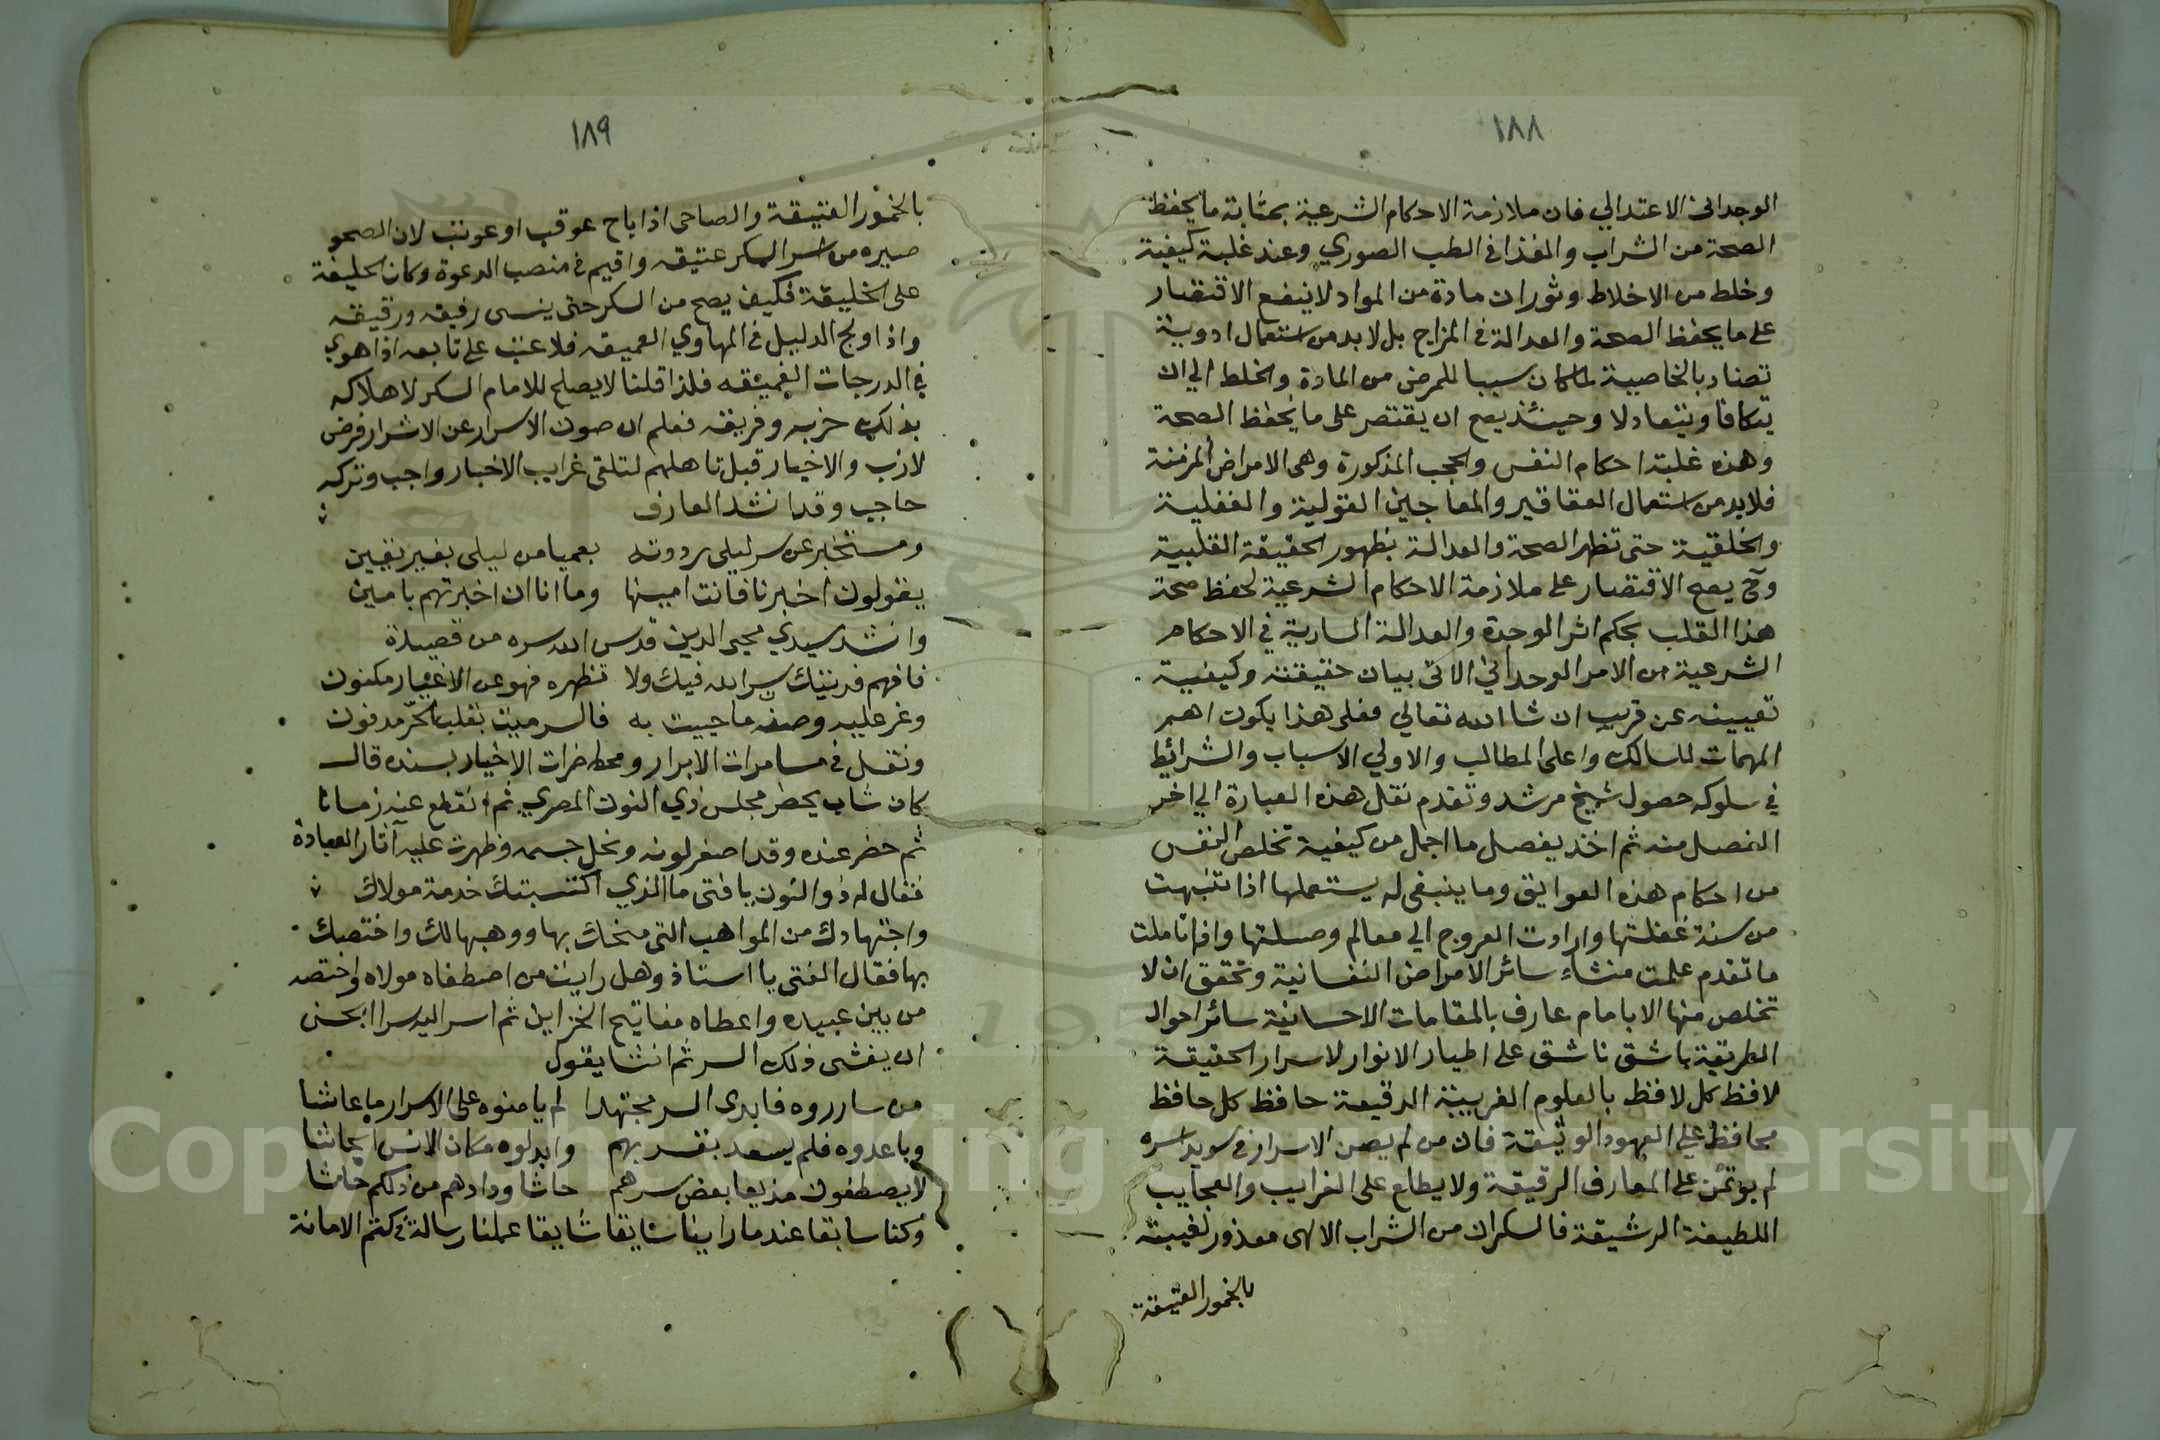 ١٨٨
الوجداني الاعتدالي فان ملازمة الاحكام الشرعية بمثابة ما يحفظ
الصحة من الشراب والغذا في الطب الصوري وعند غلبة كيفية
وخلط من الاخلاط وثوران مادة من المواد لا ينفع الاقتصار
على ما يحفظ الصحة والعدالة في المزاج بل لا بد من استعمال ادوية
تضاد بالخاصية لما كان سببا للمرض من المادة والخلط الي ان
يتكافا ويتعادلا وحينئذ يصح ان يقتصر على ما يحفظ الصحة
وهذه غلبة احكام النفس والحجب المذكورة وهى الامراض المزمنة
فلا بد من استعمال العقاقير والمعاجين القولية والفعلية
والخلقية حتى تظهر الصحة والعدالة بظهور الحقيقة القلبية
وح يصح الاقتصار على ملازمة الاحكام الشرعية لحفظ صحة
هذا القلب بحكم اثر الوحدة والعدالة السارية في الاحكام
الشرعية من الامر الوحداني الاتى بيان حقيقته وكيفية
تعيينه عن قريب ان شا الله تعالي فعلى هذا يكون اهم
المهمات للسالك واعلى المطالب والاولي الاسباب والشرائط
في سلوكه حصول شيخ مرشد وتقدم نقل هذه العبارة الي اخر
الفصل منه ثم اخذ يفصل ما اجمل من كيفية تخلص النفس
من احكام هذه العوايق وما ينبغى له يستعملها اذا تنبهت
من سنة غفلتها وارادت العروج الي معالم وصلتها واذا تاملت
ما تقدم علمت منشاء سائر الامراض النفسانية وتحقق ان لا
تخلص منها الا بامام عارف بالمقامات الاحسانية سائر احوال
الطريقة باشق ناشق على اطيار الانوار لاسرار الحقيقة
لافظ كل لافظ بالعلوم الغريبة الدقيقة حافظ كل حافظ
محافظ على العهود الوثيقة فان من لم يصن الاسرار في سويد اسره
لم يوتمن على المعارف الرقيقة ولا يطلع على الغرايب والعجايب
اللطيفة الرشيقة فالسكران من الشراب الالهى معذور لغيبته
بالخمور العتيقة
١٨٩
بالخمور العتيقة والصاحى اذا باح عوقب او عوتب لان الصحو
صيره من اسر السكر عتيقه واقيم في منصب الدعوة وكان الخليفة
على الخليقة فكيف يصح من السكر حتى ينسى رفيقه ورقيقه
واذا ولج الدليل في المهاوي العميقه فلا عتب على تابعه اذا هوي
في الدرجات الغميقه فلذا قلنا لا يصلح للامام السكر لاهلاكه
بذلك حزبه وفريقه فعلم ان صون الاسرار عن الاشرار فرض
لازب والاخيار قبل تاهلهم لتلقى غرايب الاخبار واجب وتركه
حاجب وقد انشد العارف
ومستخبر عن سر ليلى رددته بعميا من ليلى بغير يقين
يقولون اخبرنا فانت امينها وما انا ان اخبرتهم بامين
وانشد سيدي محيى الدين قدس الله سره من قصيدة
فافهم فديتك سر الله فيك ولا تظهره فهو عن الاغيار مكنون
وغر عليه وصنه ما حييت به فالسر ميت بقلب الحرّ مدفون
ونقل في مسامرات الابرار ومحاضرات الاخيار بسنده قال
كان شاب يحضر مجلس ذي النون المصري ثم انقطع عنه زمانا
ثم حضر عنده وقد اصفر لونه ونحل جسمه وظهرت عليه آثار العبادة
فقال له ذو النون يا فتى ما الذي اكتسبتك خدمة مولاك
واجتهادك من المواهب التى منحك بها ووهبها لك واختصك
بها فقال الفتى يا استاذ وهل رايت من اصطفاه مولاه واختصه
من بين عبيده واعطاه مفاتيح الخزاين ثم اسر اليه سرا ايحسن
ان يفشى ذلك السر ثم انشا يقول
من سارروه فابدى السر مجتهدا لم يامنوه على الاسرار ما عاشا
وباعدوه فلم يسعد بقربهم وابدلوه مكان الانس ايحاشا
لا يصطفون مذيعا بعض سرهم حاشا ودادهم من ذلكم حاشا
وكنا سابقا عند ما راينا شايقا عملنا رسالة في كتم الامانة